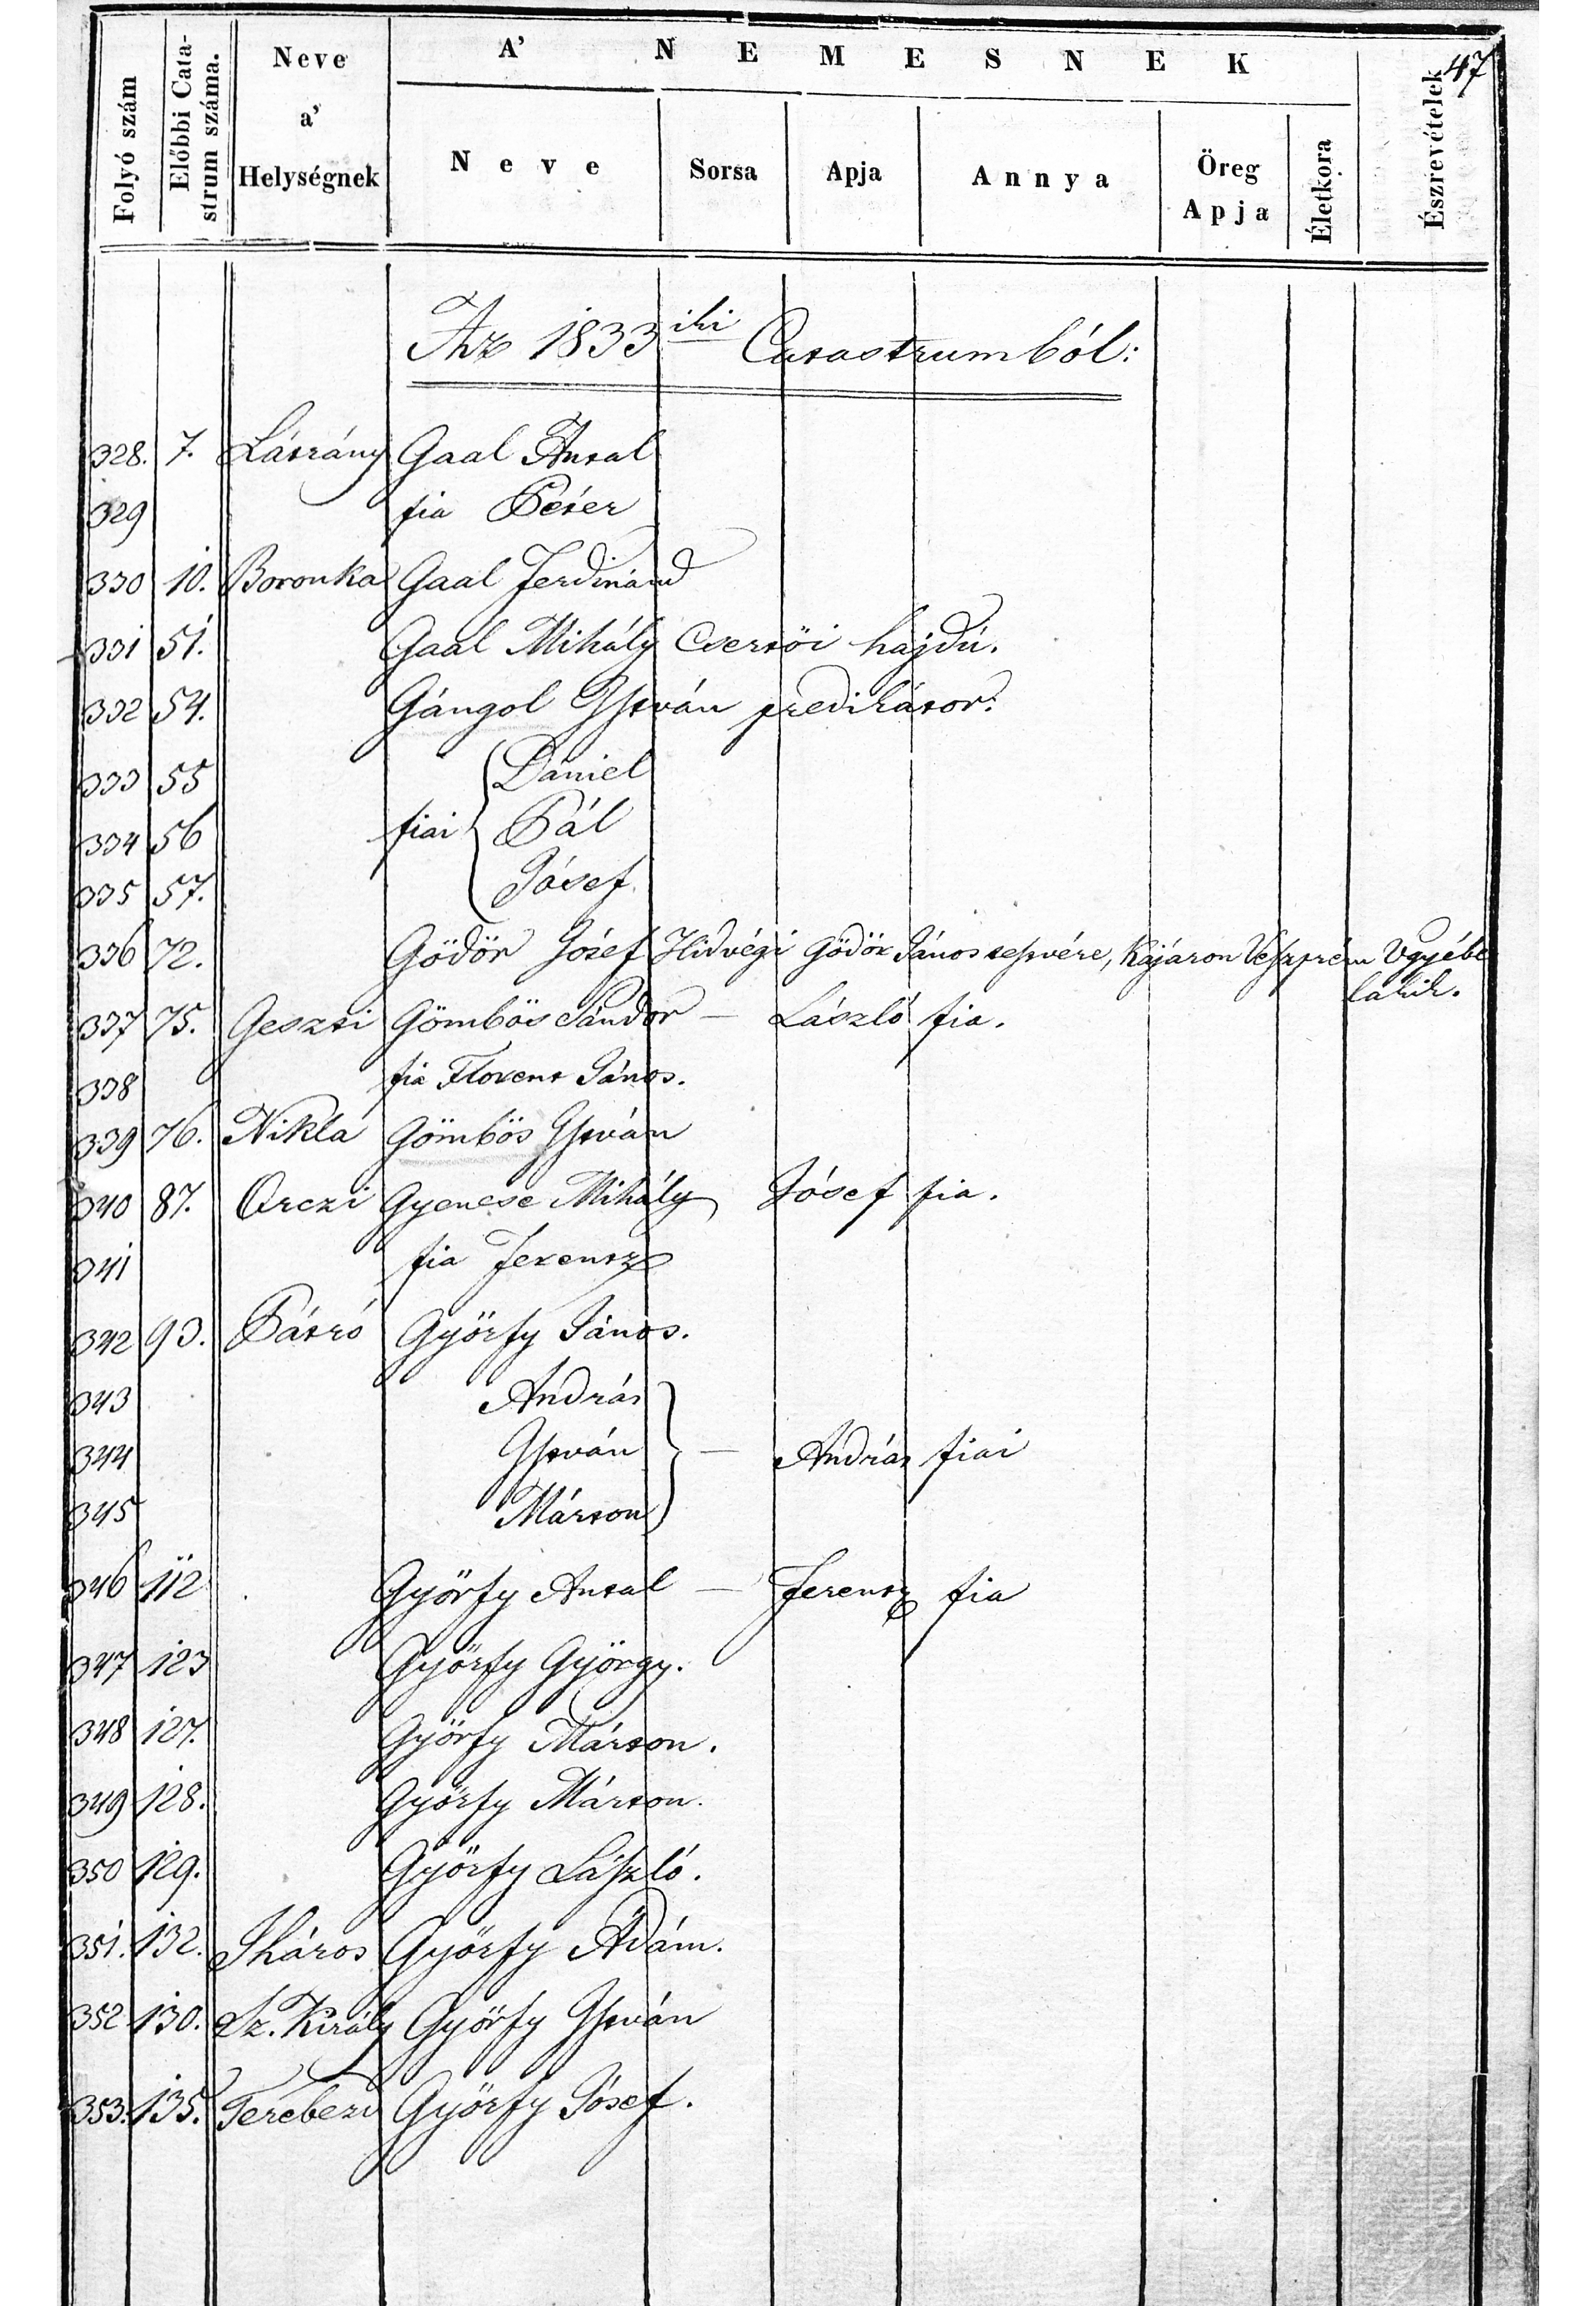 47
Folyó szám
Előbbi Cata-
strum száma.
Neve
a'
Helységnek
A' NEMESNEK
Neve
Sorsa
Apja
Annya
Öreg
Apja
Életkora
Észrevételek
Az 1833iki Catastrumból:
328. 7. Látrány Gaal Antal
329 fia Péter
330 10. Boronka Gaal Ferdinánd
331 51. Gaal Mihály Csertöi hajdú.
332 54. Gángol István predikátor:
333 55 Dániel
334 56 fiai Pál
335 57. Jósef
336 72. Gödör Jósef Hidvégi Gödör János testvére, Kajáron Veszprém Vgyébe
lakik.
337 75. Geszti Gömbös Sándor — László fia.
338 fia Florent János.
339 76. Nikla Gömbös István
340 87. Orczi Gyenese Mihály Jósef fia.
341 fia Ferentz
342 93. Pátró Györfy János.
343 András
344 István — András fiai
345 Márton
346 112 Györfy Antal — Ferentz fia
347 123 Györfy György.
348 127. Györfy Márton.
349 128. Györfy Márton.
350 129. Györfy László.
351. 132. Iháros Györfy Ádám.
352 130. Sz. Király Györfy István
353. 135. Terebezd Györfy Jósef.